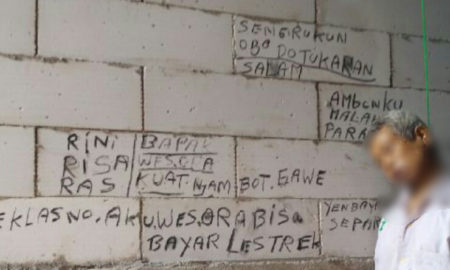 SENG RUKUN
OBO DO TUKARAN
SALAM
AMBONKU
MALA
PARA
RINI
RISA
RAS
BAPAK
WES.ORA
KUAT.NYAM BOT.GAWE
EKLASNO.AKU.WES.ORA BISA
BAYAR LESTREK
YENBAY
SEPAR